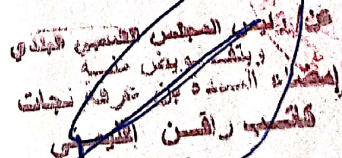 عن رئيس المجلس الشعبي البلدي
وبتفويض منه
إمضاء السيدة بن عرفة نجات
كاتب رئيسي إقليمي